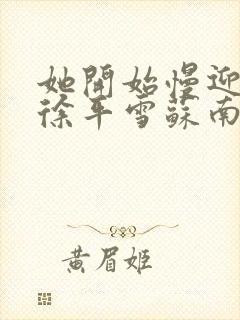 她開始慢迎
徐平雪蘇南
黃眉姬